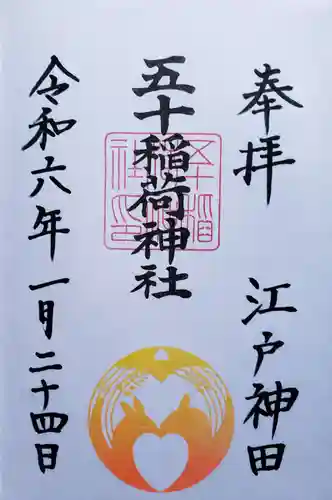 奉拝 江戸神田
五十稲荷神社
令和六年一月二十四日